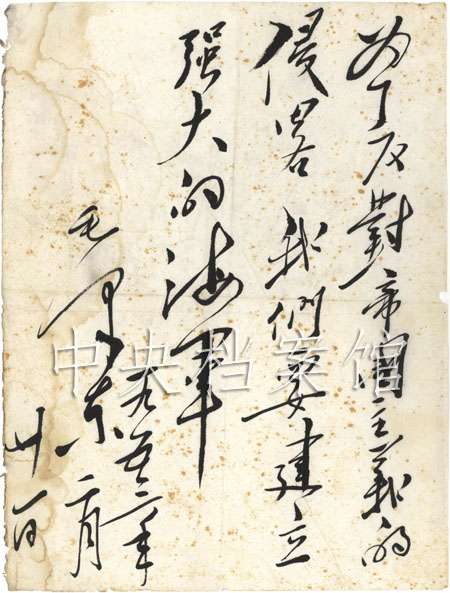 为了反對帝國主義的
侵畧 我們要建立
强大的海军
毛泽东
一九五三年
二月
廿一日
中央档案馆